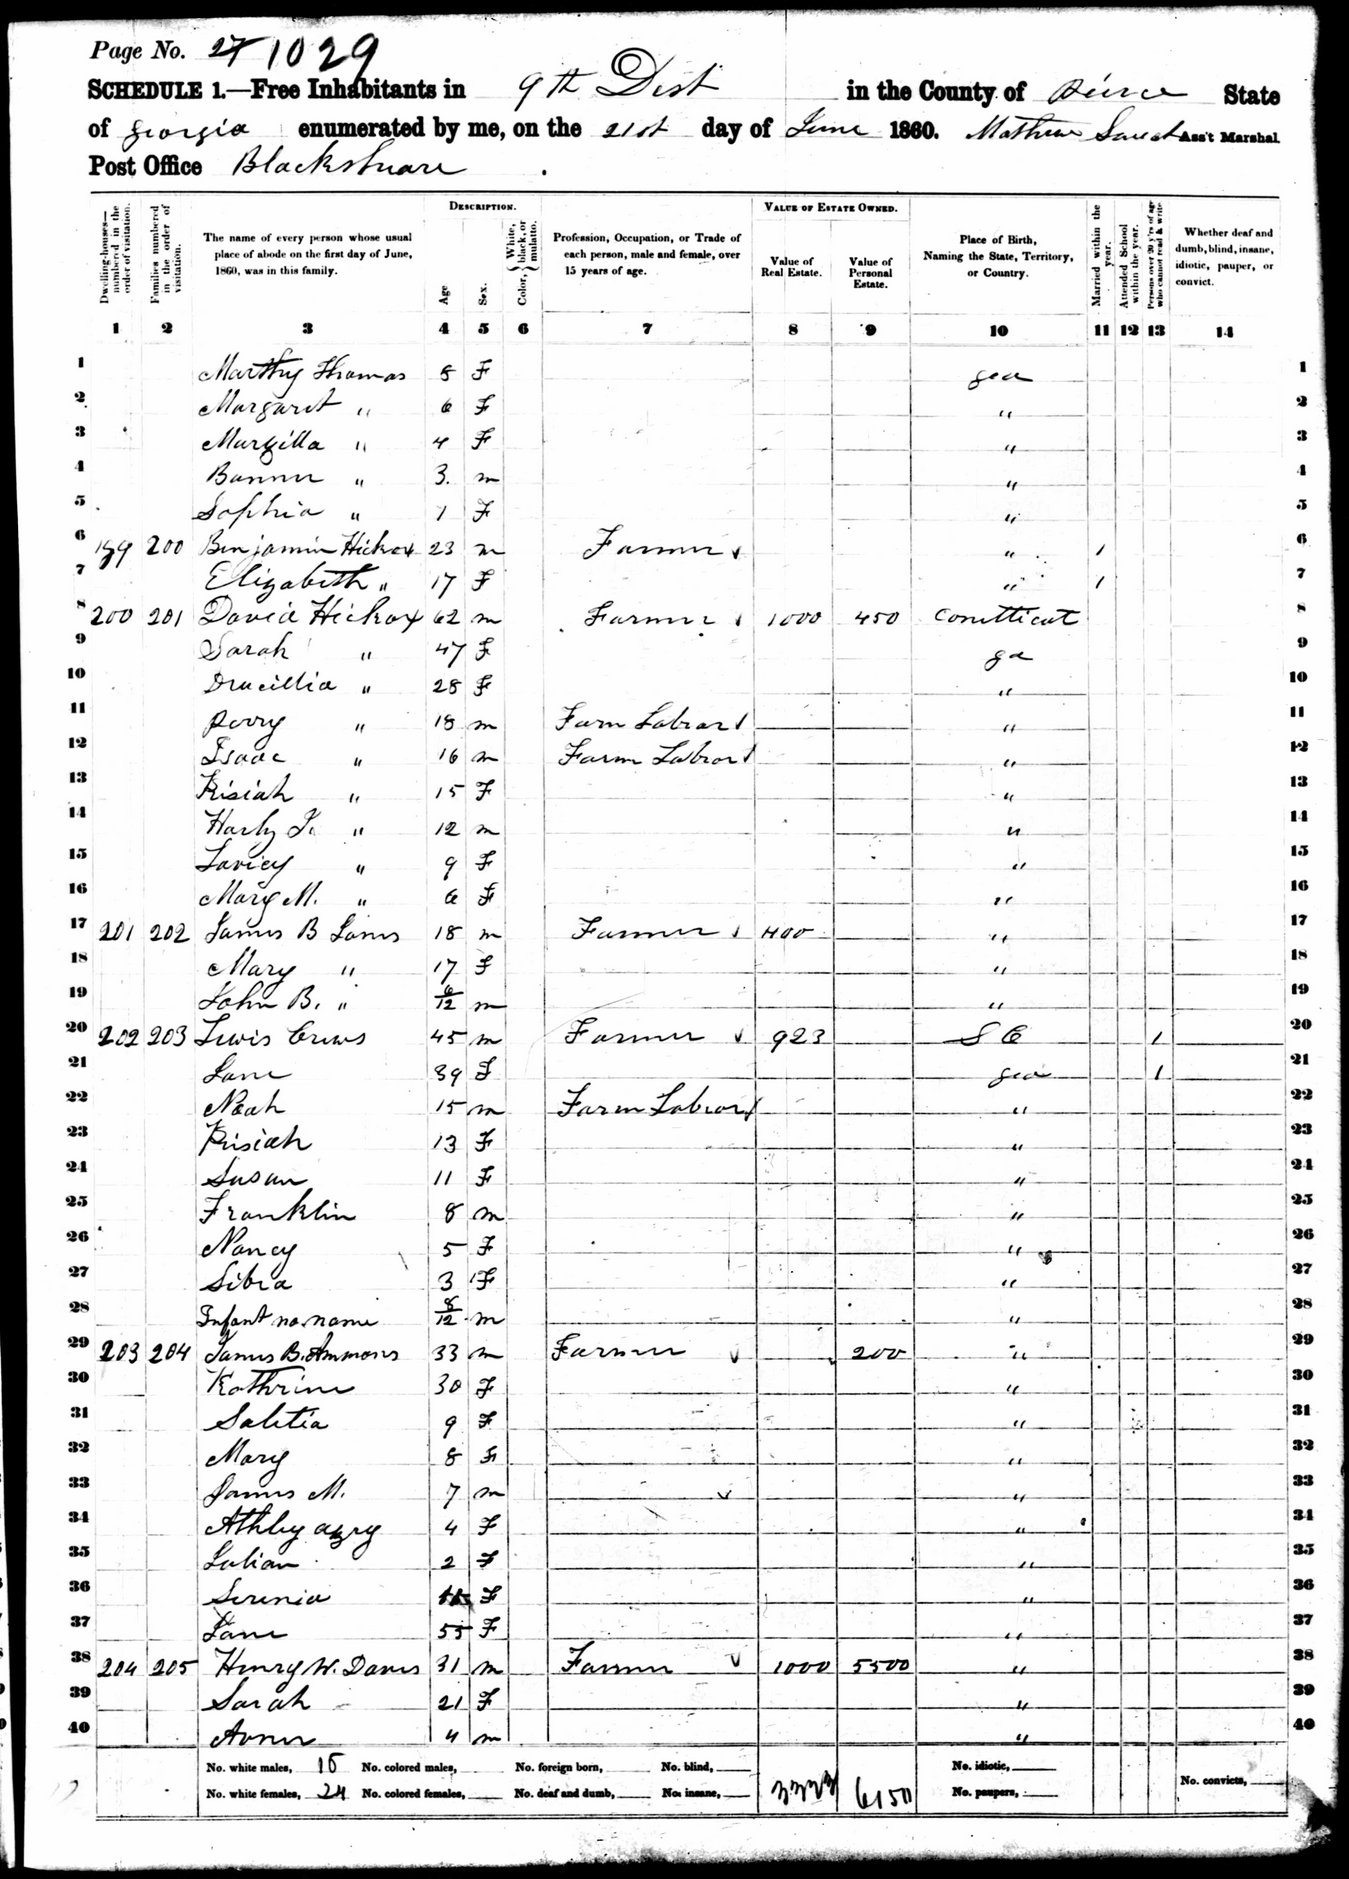 Page No. 27 1029
SCHEDULE 1.—Free Inhabitants in 9th Dist in the County of Peirce State
of Georgia enumerated by me, on the 21st day of June 1860. Mathew Sweat Ass't Marshal.
Post Office Blackshuare
Dwelling-houses—numbered in the order of visitation.
Families numbered in the order of visitation.
The name of every person whose usual place of abode on the first day of June, 1860, was in this family.
DESCRIPTION.
Age
Sex.
Color, { White, black, or mulatto.
Profession, Occupation, or Trade of each person, male and female, over 15 years of age.
VALUE OF ESTATE OWNED.
Value of Real Estate.
Value of Personal Estate.
Place of Birth, Naming the State, Territory, or Country.
Married within the year.
Attended School within the year.
Persons over 20 y'rs of age who cannot read & write.
Whether deaf and dumb, blind, insane, idiotic, pauper, or convict.
1 2 3 4 5 6 7 8 9 10 11 12 13 14
1 Marthy Thomas 8 F gea 1
2 Margaret " 6 F " 2
3 Margilla " 4 F " 3
4 Banner " 3. m " 4
5 Sophia " 1 F " 5
6 199 200 Benjamin Hickox 23 m Farmer " 1 6
7 Elizabeth " 17 F " 1 7
8 200 201 David Hickox 62 m Farmer 1000 450 Conetticut 8
9 Sarah " 47 F ga 9
10 Drucillia " 28 F " 10
11 Perry " 18 m Farm Labrar " 11
12 Isaac " 16 m Farm Labror " 12
13 Kisiah " 15 F " 13
14 Harly J. " 12 m " 14
15 Lavicy " 9 F " 15
16 Mary M. " 6 F " 16
17 201 202 James B Jones 18 m Farmer 400 " 17
18 Mary " 17 F " 18
19 John B. " 6/12 m " 19
20 202 203 Lewis Crews 45 m Farmer 923 S C 1 20
21 Jane 39 F gea 1 21
22 Noah 15 m Farm Labror " 22
23 Kisiah 13 F " 23
24 Susan 11 F " 24
25 Franklin 8 m " 25
26 Nancy 5 F " 26
27 Sibra 3 F " 27
28 Infant no name 8/12 m " 28
29 203 204 James B. Ammons 33 m Farmer 200 " 29
30 Kathrine 30 F " 30
31 Saletia 9 F " 31
32 Mary 8 F " 32
33 James M. 7 m " 33
34 Athley 4 F " 34
35 Julian 2 F " 35
36 Serenia F " 36
37 Jane 55 F " 37
38 204 205 Henry W. Davis 31 m Farmer 1000 5500 " 38
39 Sarah 21 F " 39
40 Avner 4 m " 40
No. white males, 15 No. colored males, No. foreign born, No. blind, No. idiotic,
No. white females, 24 No. colored females, No. deaf and dumb, No. insane, 3323 6150 No. paupers, No. convicts,